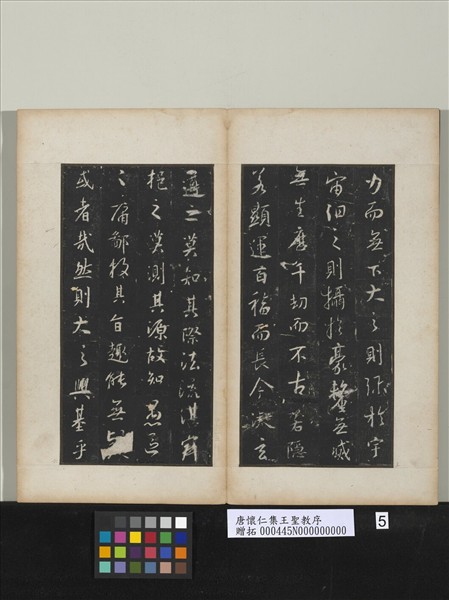 力而無下大之則弥於宇
宙細之則攝於豪釐無滅
無生歷千劫而不古若隱
若顯運百福而長今凝玄
遵之莫知其際法流湛寂
挹之莫測其源故知愚區
々庸鄙投其旨趣能無
或者哉然則大之興基乎
唐懷仁集王聖教序
贈拓 000445N000000000
5